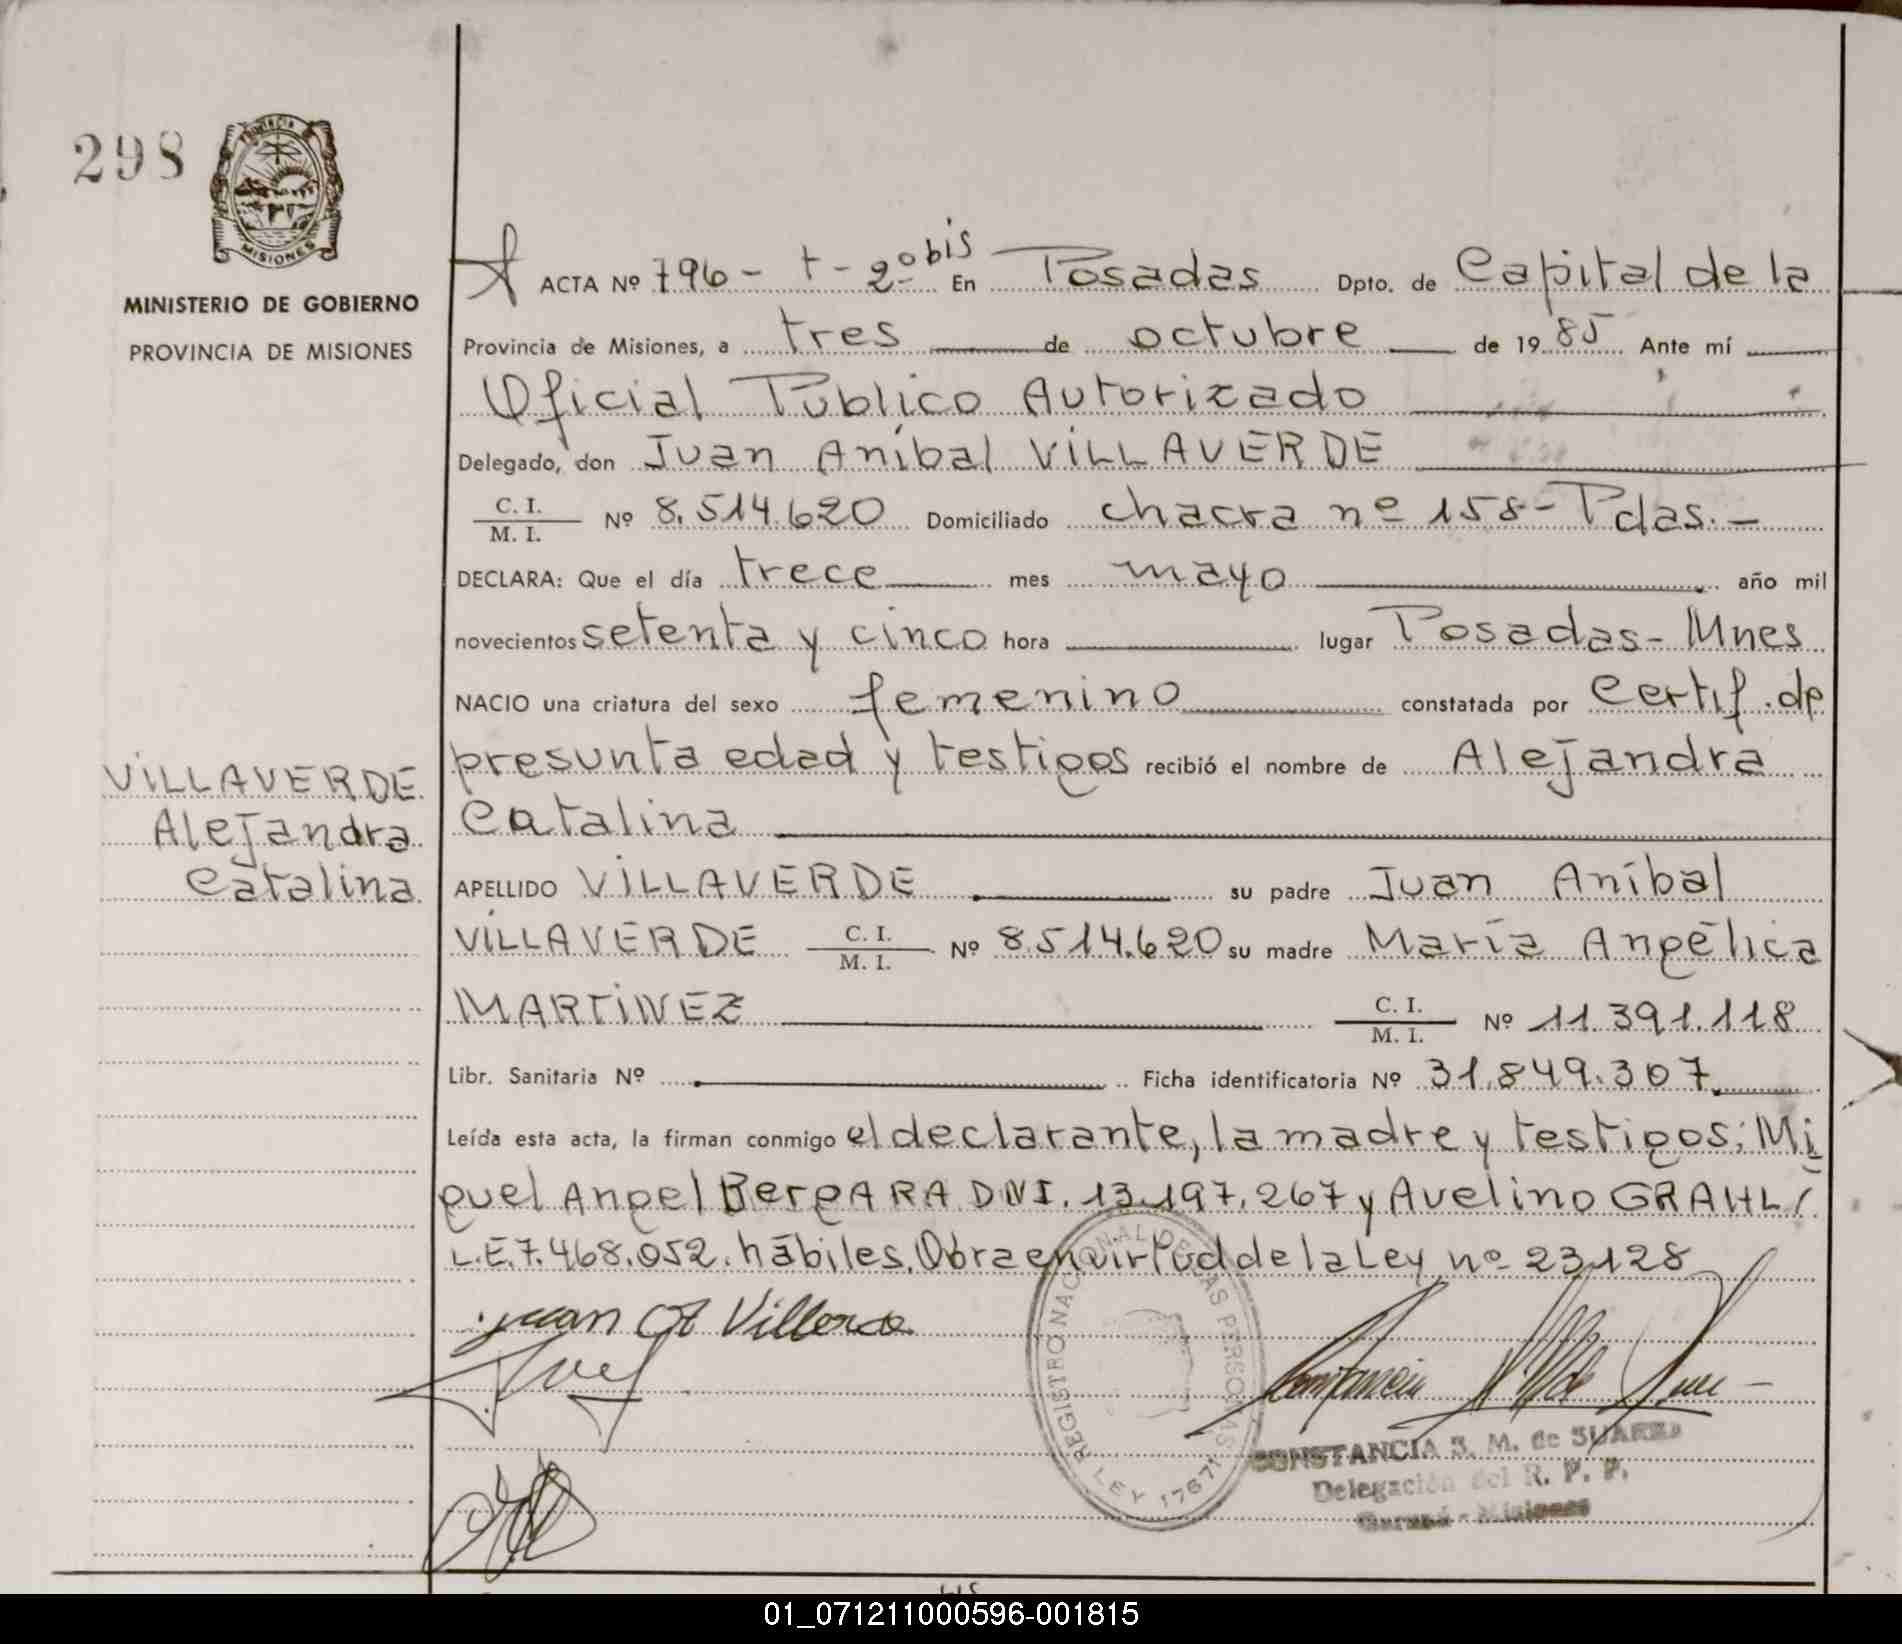 298
PROVINCIA
MISIONES
MINISTERIO DE GOBIERNO
PROVINCIA DE MISIONES
ACTA Nº 796 - t - 2º bis En Posadas Dpto. de Capital de la
Provincia de Misiones, a tres de octubre de 1985 Ante mí
Oficial Público Autorizado
Delegado, don Juan Aníbal VILLAVERDE
C. I.
M. I. Nº 8.514.620 Domiciliado chacra nº 158 - Pdas. -
DECLARA: Que el día trece mes mayo año mil
novecientos setenta y cinco hora lugar Posadas - Mnes
NACIO una criatura del sexo femenino constatada por Certif. de
presunta edad y testigos recibió el nombre de Alejandra
Catalina
VILLAVERDE
Alejandra
Catalina
APELLIDO VILLAVERDE su padre Juan Aníbal
VILLAVERDE C. I.
M. I. Nº 8.514.620 su madre María Angélica
MARTINEZ C. I.
M. I. Nº 11.391.118
Libr. Sanitaria Nº Ficha identificatoria Nº 31.849.307
Leída esta acta, la firman conmigo el declarante, la madre y testigos; Mi
guel Angel BergARA DNI. 13.197.267 y Avelino GRAHL/
L.E. 7.468.052. hábiles. Obra en virtud de la Ley nº 23.128
Juan A Villaverde
REGISTRO NACIONAL DE LAS PERSONAS
LEY 17671
CONSTANCIA S. M. de SUAREZ
Delegación del R. P. P.
Misiones
01_071211000596-001815